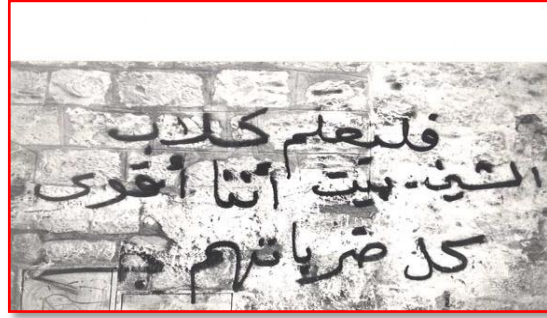 فليعلم كلاب
الشين-بيت أننا أقوى
كل ضرباتهم